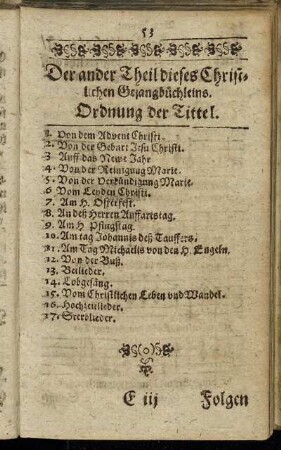 53
Der ander Theil dieses Christ-
lichen Gesangbüchleins.
Ordnung der Tittel.
1. Von dem Advent Christi.
2. Von der Geburt Jesu Christi.
3. Auff das Newe Jahr
4. Von der Reinigung Marie.
5. Von der Verkündigung Marie.
6. Vom Leyden Christi.
7. Am H. Osterfest.
8. An deß Herren Auffartstag.
9. Am H. Pfingstag.
10. Am tag Johannis deß Tauffers.
11. Am Tag Michaelis von den H. Engeln.
12. Von der Buß.
13. Betlieder.
14. Lobgesäng.
15. Vom Christlichen Leben vnd Wandel.
16. Hochzeitlieder.
17. Sterblieder.
E iij Folgen